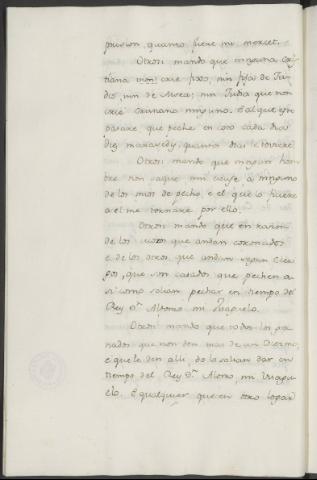 prision, quanto fuere mi merzet.
Otrosi mando que ninguna Cris
tiana non crie fixo, nin fija de Ju
dio, nin de Moro; nin Judia que non
crie Cristiano ninguno. E al que esto
pasare, que peche en coto cada dia
diez maravedis, quantos dias le toviere.
Otrosi mando que ningun hom
bre non saque nin escuse a ninguno
de los mios de pecho, e el que lo ficiere
a el me tornare por ello.
Otrosi mando que en razon
de los que andan coronados
e de los otros que andan segun Cleri
gos, que son casados que pechen a
si como solian pechar en tiempo del
Rey Dn. Alfonso mi Visavuelo.
Otrosi mando que todos los ga
nados que non den mas de un Diezmo,
e que le den alli, do lo solian dar en
tiempo del Rey Dn. Alonso, mi Visavue
lo. E qualquier que en otro logar